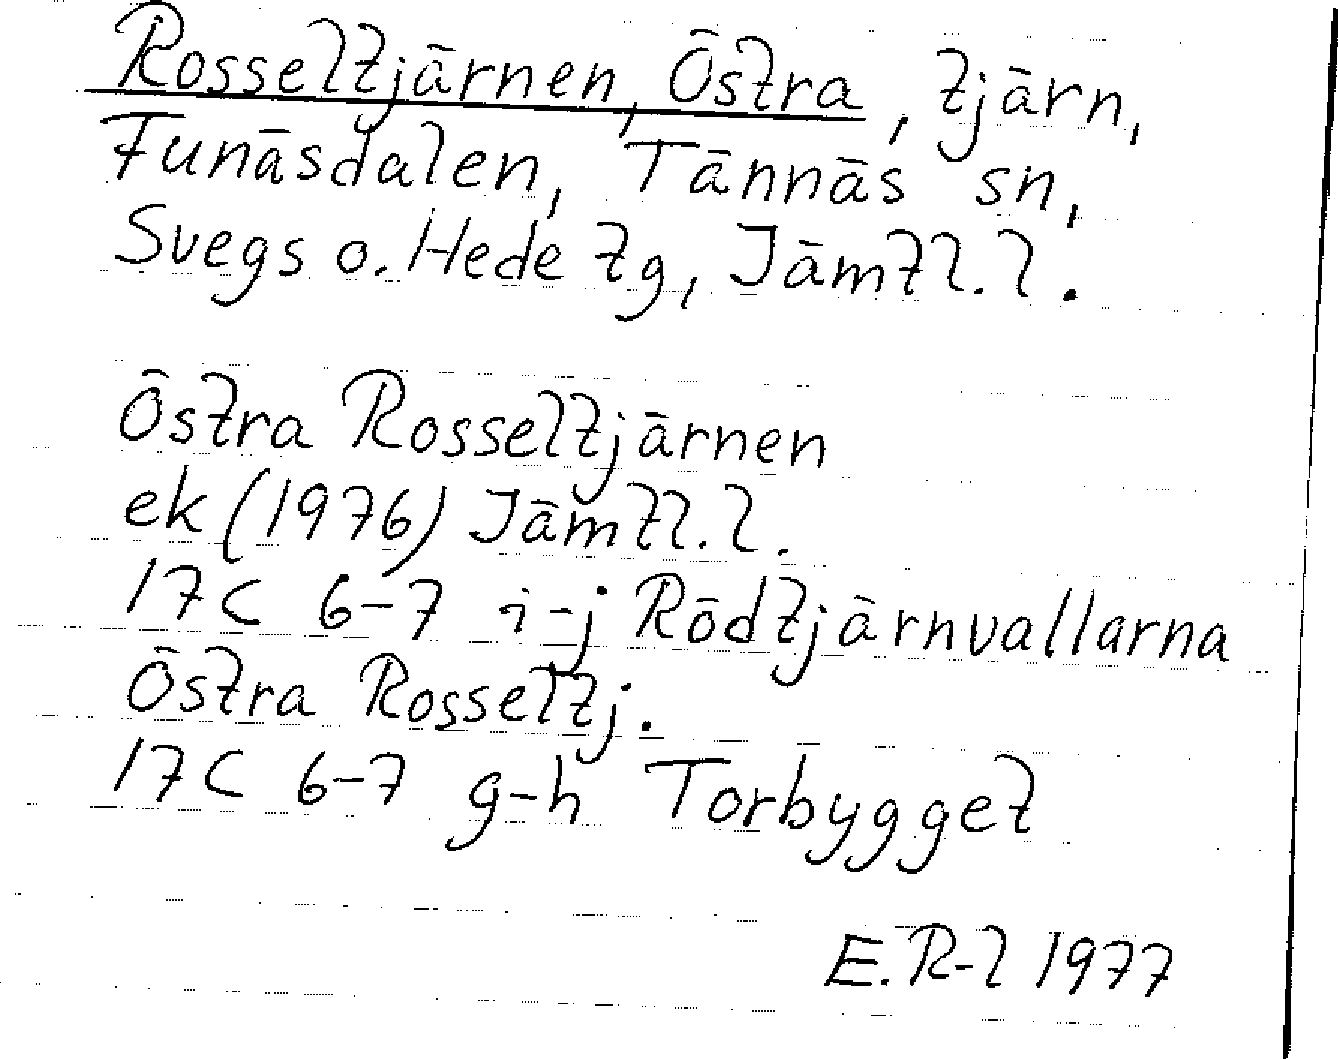 Rosseltjärnen, Östra, tjärn,
Funäsdalen, Tännäs sn,
Svegs o. Hede tg, Jämtl. l.
Östra Rosseltjärnen
ek (1976) Jämtl. l.
17C 6-7 i-j Rödtjärnvallarna
Östra Rosseltj.
17C 6-7 g-h Torbygget
E. R-l 1977